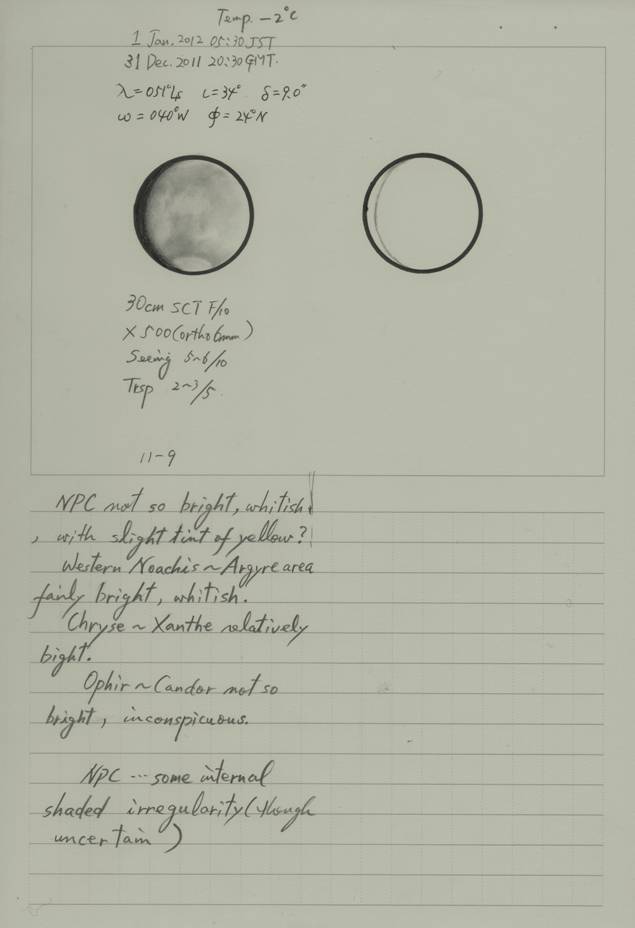 Temp. -2°C
1 Jan. 2012 05:30 JST
31 Dec. 2011 20:30 GMT.
λ=051°Ls ι=34° δ=9.0"
ω=040°W φ=24°N
30cm SCT F/10
×500(ortho6mm)
Seeing 5~6/10
Trsp 2~3/5
11-9
NPC not so bright, whitish.
, with slight tint of yellow?
Western Noachis~Argyre area
fairly bright, whitish.
Chryse~Xanthe relatively
bight.
Ophir~Candor not so
bright, inconspicuous.
NPC ... some internal
shaded irregularity (though
uncertain)